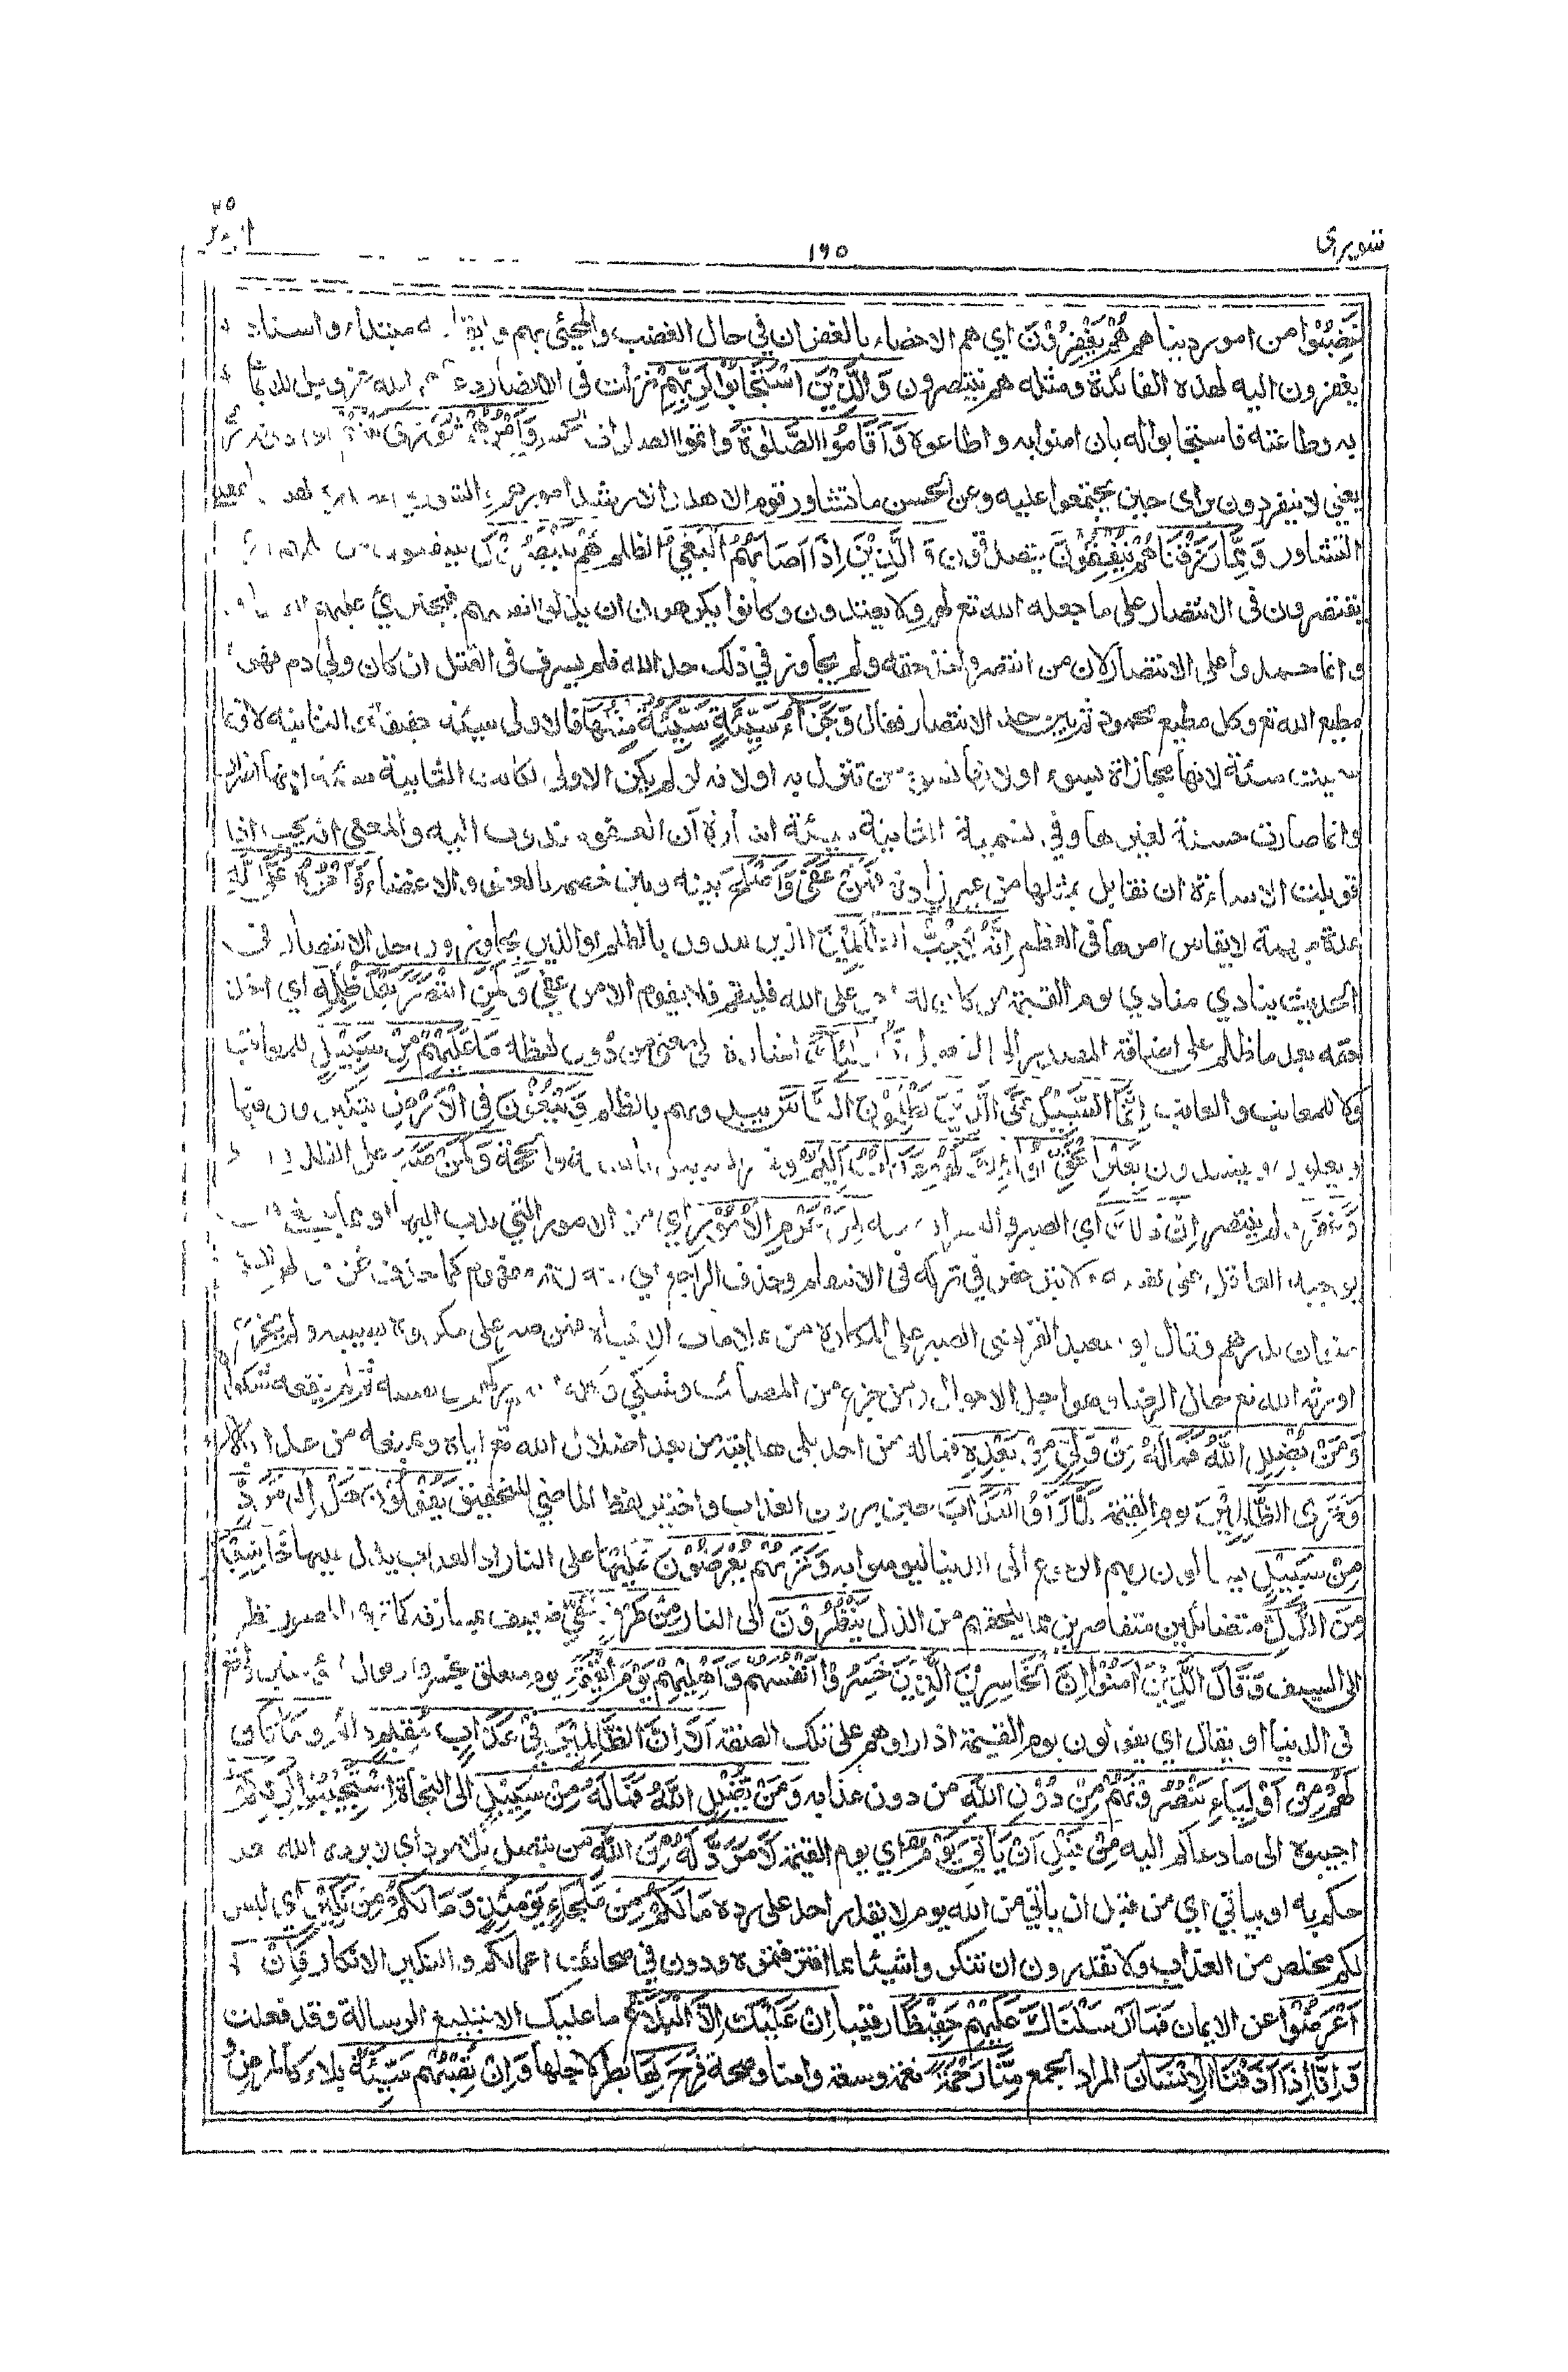 شورى
١٩٥
٢٥
غَضِبُوْا من امور دينا هم هُمْ يَغْفِرُوْنَ اي هم الاخصاء بالغفران في حال الغضب والمجيئ بهم و مبتداء واسناد
يغفرون اليه لهذه الفائدة ومثله هم ينتصرون وَالَّذِيْنَ اسْتَجَابُوْا لِرَبِّهِمْ نزلت في الانصار الله عز وجل للايمان
به وطاعته فاستجابوا له بان امنوا به واطاعوه وَاَقَامُوا الصَّلٰوةَ واتموا الصلوات وَاَمْرُهُمْ شُوْرٰى
يعني لا ينفردون براى حين يجتمعوا عليه وعن الحسن ما تشاور قوم الا هدوا لارشد امورهم والشورى
التشاور وَمِمَّا رَزَقْنَاهُمْ يُنْفِقُوْنَ يتصدقون وَالَّذِيْنَ اِذَا اَصَابَهُمُ الْبَغْيُ الظلم هُمْ يَنْتَصِرُوْنَ
يقتصرون في الانتصار على ما جعله الله تع لهم ولا يعتدون وكانوا يكرهون ان يذلوا انفسهم فيجترئ عليهم
وانما حمدوا على الانتصار لان من انتصر واخذ حقه ولم يجاوز في ذلك حد الله فلم يسرف في القتل ان كان ولي دم فهو
مطيع الله تع وكل مطيع محمود ثم بين حد الانتصار فقال وَجَزَآءُ سَيِّئَةٍ سَيِّئَةٌ مِثْلُهَا فالاولى سيئة حقيقة والثانية لا
سميت سيئة لانها مجازاة لسوء او لانها تسوء من تنزل به او لانه لو لم يكن الاولى لكانت الثانية سيئة
وانما صارت حسنة لغيرها وفي تسمية الثانية سيئة اشارة ان العفو مندوب اليه والمعنى انه يجب اذا
قوبلت الاساءة ان تقابل بمثلها من غير زيادة فَمَنْ عَفَى وَاَصْلَحَ بينه وبين خصمه بالعفو والاغضاء فَاَجْرُهُ عَلَى اللّٰهِ
عدة مبهمة لا يقاس امرها في العظم اِنَّهُ لَا يُحِبُّ الظَّالِمِيْنَ الذين يبدون بالظلم او الذين يجاوزون حد الانتصار في
الحديث ينادي مناد يوم القيمة من كان له اجر على الله فليقم فلا يقوم الا من عفى وَلَمَنِ انْتَصَرَ بَعْدَ ظُلْمِهِ اي اخذ
حقه بعد ما ظلم على اضافة المصدر الى المفعول فَاُولٰئِكَ اشارة الى معنى من دون لفظه مَا عَلَيْهِمْ مِنْ سَبِيْلٍ للمعاقب
ولا للمعاتب والعائب اِنَّمَا السَّبِيْلُ عَلَى الَّذِيْنَ يَظْلِمُوْنَ النَّاسَ يبتدونهم بالظلم وَيَبْغُوْنَ فِي الْاَرْضِ يتكبرون فيها
ويعلون ويفسدون بِغَيْرِ الْحَقِّ اُولٰئِكَ لَهُمْ عَذَابٌ اَلِيْمٌ وَلَمَنْ صَبَرَ على الظلم
وَغَفَرَ ولم ينتصر اِنَّ ذٰلِكَ اي الصبر والغفران منه لَمِنْ عَزْمِ الْاُمُوْرِ اي من الامور التي ندب اليها او مما ينبغي ان
يوجبه العاقل على نفسه ولا يترخص في تركه وحذف الراجع اي منه لانه مفهوم كما حذف من قولهم السمن
منوان بدرهم وقال ابو سعيد القرشي الصبر على المكاره من علامات الانتباه فمن صبر على مكروه يصيبه ولم يجزع
اورثه الله تع حال الرضا وهو اجل الاحوال ومن جزع من المصائب وشكى وكله الله الى نفسه ثم لم ينفعه شكواه
وَمَنْ يُضْلِلِ اللّٰهُ فَمَا لَهُ مِنْ وَلِيٍّ مِنْ بَعْدِهِ فماله من احد يلي هدايته من بعد اضلال الله تع اياه ويمنعه من عذاب
وَتَرَى الظَّالِمِيْنَ يوم القيمة لَمَّا رَاَوُا الْعَذَابَ حين يرون العذاب واختير لفظ الماضي للتحقيق يَقُوْلُوْنَ هَلْ اِلٰى مَرَدٍّ
مِنْ سَبِيْلٍ يسالون ربهم الرجوع الى الدنيا ليومنوا به وَتَرٰهُمْ يُعْرَضُوْنَ عَلَيْهَا على النار اذ العذاب يدل عليها خَاشِعِيْنَ
مِنَ الذُّلِّ متضائلين متقاصرين مما يلحقهم من الذل يَنْظُرُوْنَ الى النار مِنْ طَرْفٍ خَفِيٍّ ضعيف بمسارقة كما ترى المصبور ينظر
الى السيف وَقَالَ الَّذِيْنَ اٰمَنُوْا اِنَّ الْخَاسِرِيْنَ الَّذِيْنَ خَسِرُوْا اَنْفُسَهُمْ وَاَهْلِيْهِمْ يَوْمَ الْقِيٰمَةِ يوم متعلق بخسروا وقول المؤمنين واقع
في الدنيا او يقال اي يقولون يوم القيمة اذا راوهم على تلك الصفة اَلَا اِنَّ الظَّالِمِيْنَ فِيْ عَذَابٍ مُّقِيْمٍ دائم وَمَا كَانَ
لَهُمْ مِنْ اَوْلِيَاءَ يَنْصُرُوْنَهُمْ مِنْ دُوْنِ اللّٰهِ من دون عذابه وَمَنْ يُضْلِلِ اللّٰهُ فَمَا لَهُ مِنْ سَبِيْلٍ الى النجاة اِسْتَجِيْبُوْا لِرَبِّكُمْ
اجيبوه الى ما دعاكم اليه مِنْ قَبْلِ اَنْ يَاْتِيَ يَوْمٌ اي يوم القيمة لَا مَرَدَّ لَهُ مِنَ اللّٰهِ من يتصل بلا مرد اي لا يرده الله بعد
حكم به او بياتي اي من قبل ان ياتي من الله يوم لا يقدر احد على رده مَا لَكُمْ مِنْ مَلْجَاءٍ يَوْمَئِذٍ وَمَا لَكُمْ مِنْ نَكِيْرٍ اي ليس
لكم مخلص من العذاب ولا تقدرون ان تنكروا شيئا مما اقترفتموه ودون في صحائف اعمالكم والنكير الانكار فَاِنْ
اَعْرَضُوْا عن الايمان فَمَا اَرْسَلْنَاكَ عَلَيْهِمْ حَفِيْظًا رقيبا اِنْ عَلَيْكَ اِلَّا الْبَلَاغُ ما عليك الا تبليغ الرسالة وقد فعلت
وَاِنَّا اِذَا اَذَقْنَا الْاِنْسَانَ المراد الجمع مِنَّا رَحْمَةً نعمة وسعة وامنا وصحة فَرِحَ بِهَا بطر لاجلها وَاِنْ تُصِبْهُمْ سَيِّئَةٌ بلاء كالمرض و